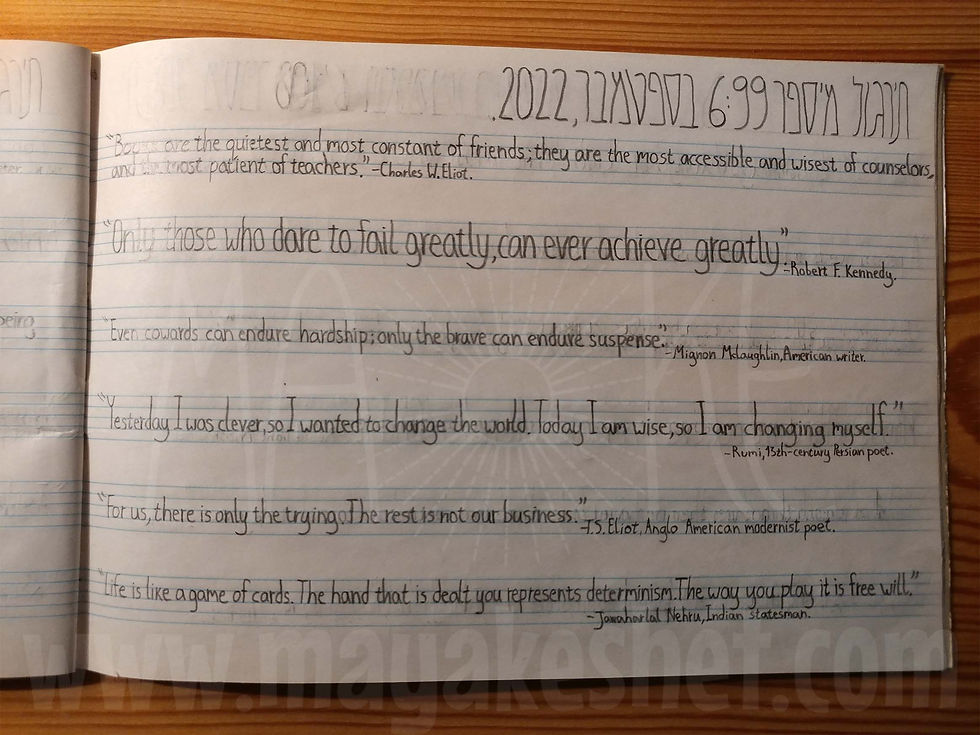 תרגול מיספר 99: 6 בספטמבר, 2022.
"Books are the quietest and most constant of friends; they are the most accessible and wisest of counselors,
and the most patient of teachers." -Charles W. Eliot.
"Only those who dare to fail greatly, can ever achieve greatly"
-Robert F. Kennedy.
"Even cowards can endure hardship; only the brave can endure suspense."
-Mignon McLaughlin, American writer.
"Yesterday I was clever, so I wanted to change the world. Today I am wise, so I am changing myself."
-Rumi, 13th-century Persian poet.
"For us, there is only the trying. The rest is not our business."
-T.S. Eliot, Anglo American modernist poet.
"Life is like a game of cards. The hand that is dealt you represents determinism. The way you play it is free will."
-Jawaharlal Nehru, Indian statesman.
www.mayakeshet.com